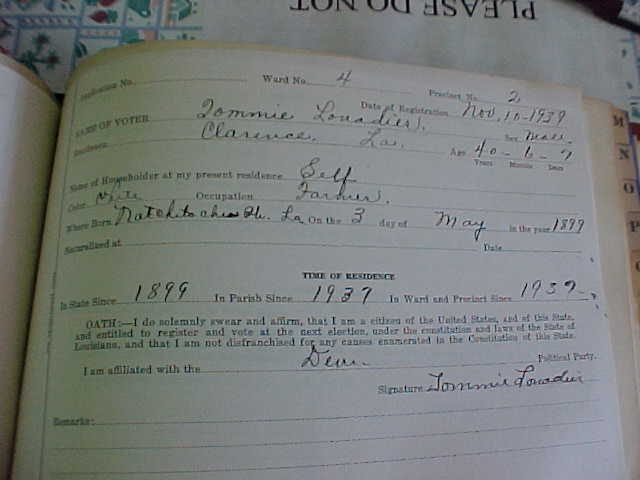 PLEASE DO NOT
Application No. Ward No. 4 Precinct No. 2
Date of Registration Nov. 10-1939
NAME OF VOTER Tommie Louadier. Sex Male.
Residence Clarence, La. Age 40-6-7
Years Months Days
Name of Householder at my present residence Self
Color White Occupation Farmer.
Where Born Natchitoches Ph. La On the 3 day of May in the year 1899
Naturalized at Date
TIME OF RESIDENCE
In State Since 1899 In Parish Since 1937 In Ward and Precinct Since 1937
OATH:—I do solemnly swear and affirm, that I am a citizen of the United States, and of this State,
and entitled to register and vote at the next election, under the constitution and laws of the State of
Louisiana, and that I am not disfranchised for any causes enumerated in the Constitution of this State.
I am affiliated with the Dem. Political Party.
Signature Tommie Louadier
Remarks:
M
N
O
P